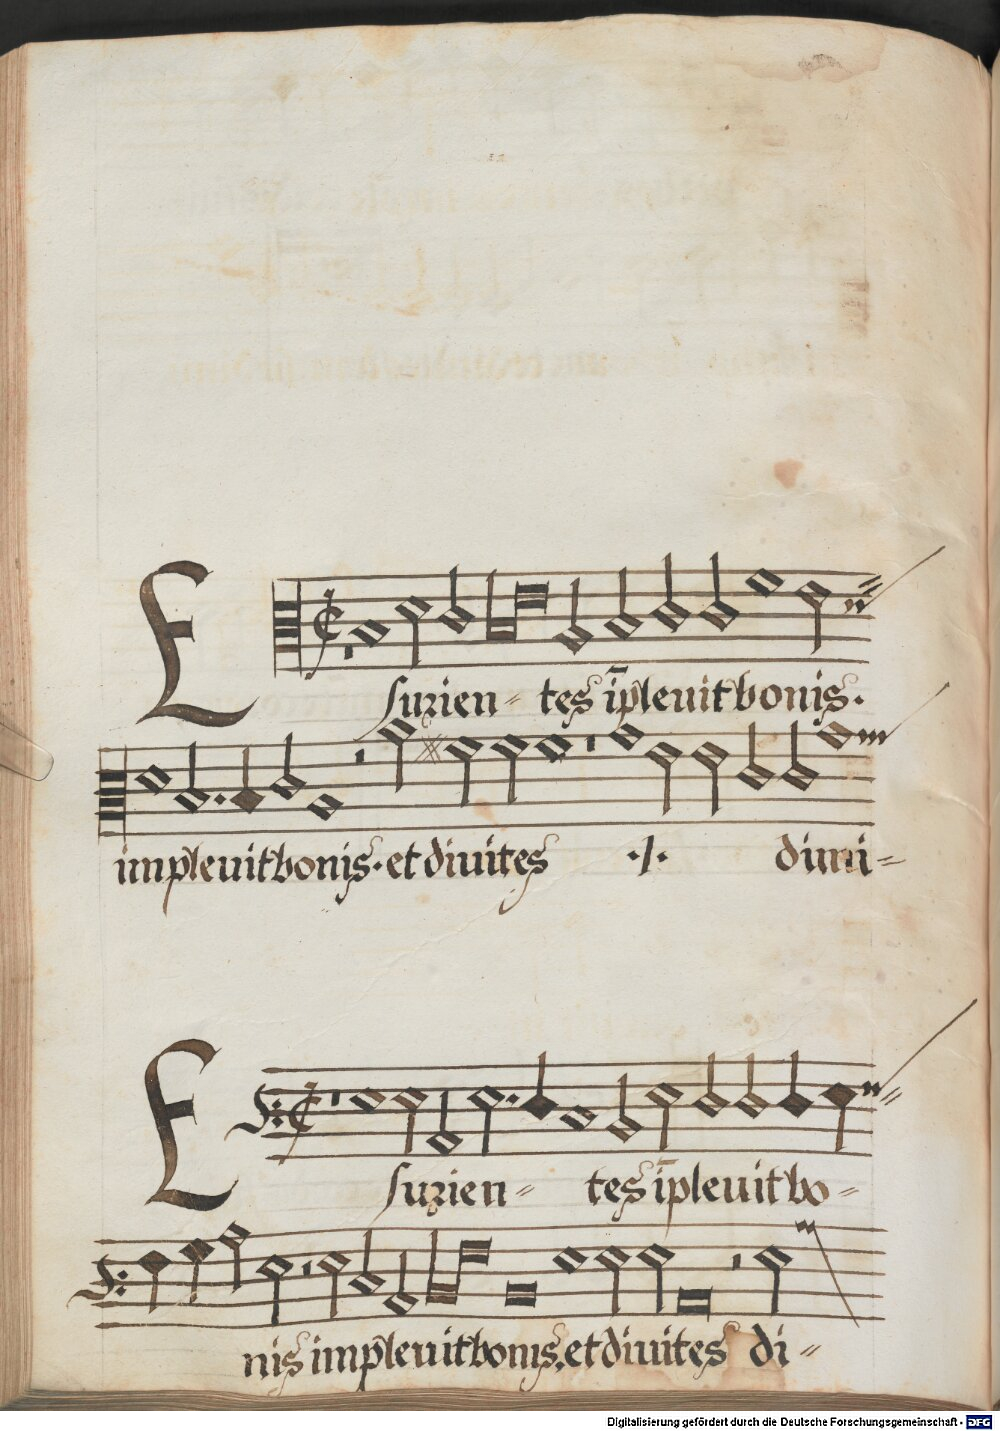 Esurien- tes īpleuit bonis.
impleuit bonis. et diuites ./. dimi-
Esurien- tes īpleuit bo-
nis impleuit bonis. et diuites di-
Digitalisierung gefördert durch die Deutsche Forschungsgemeinschaft - DFG